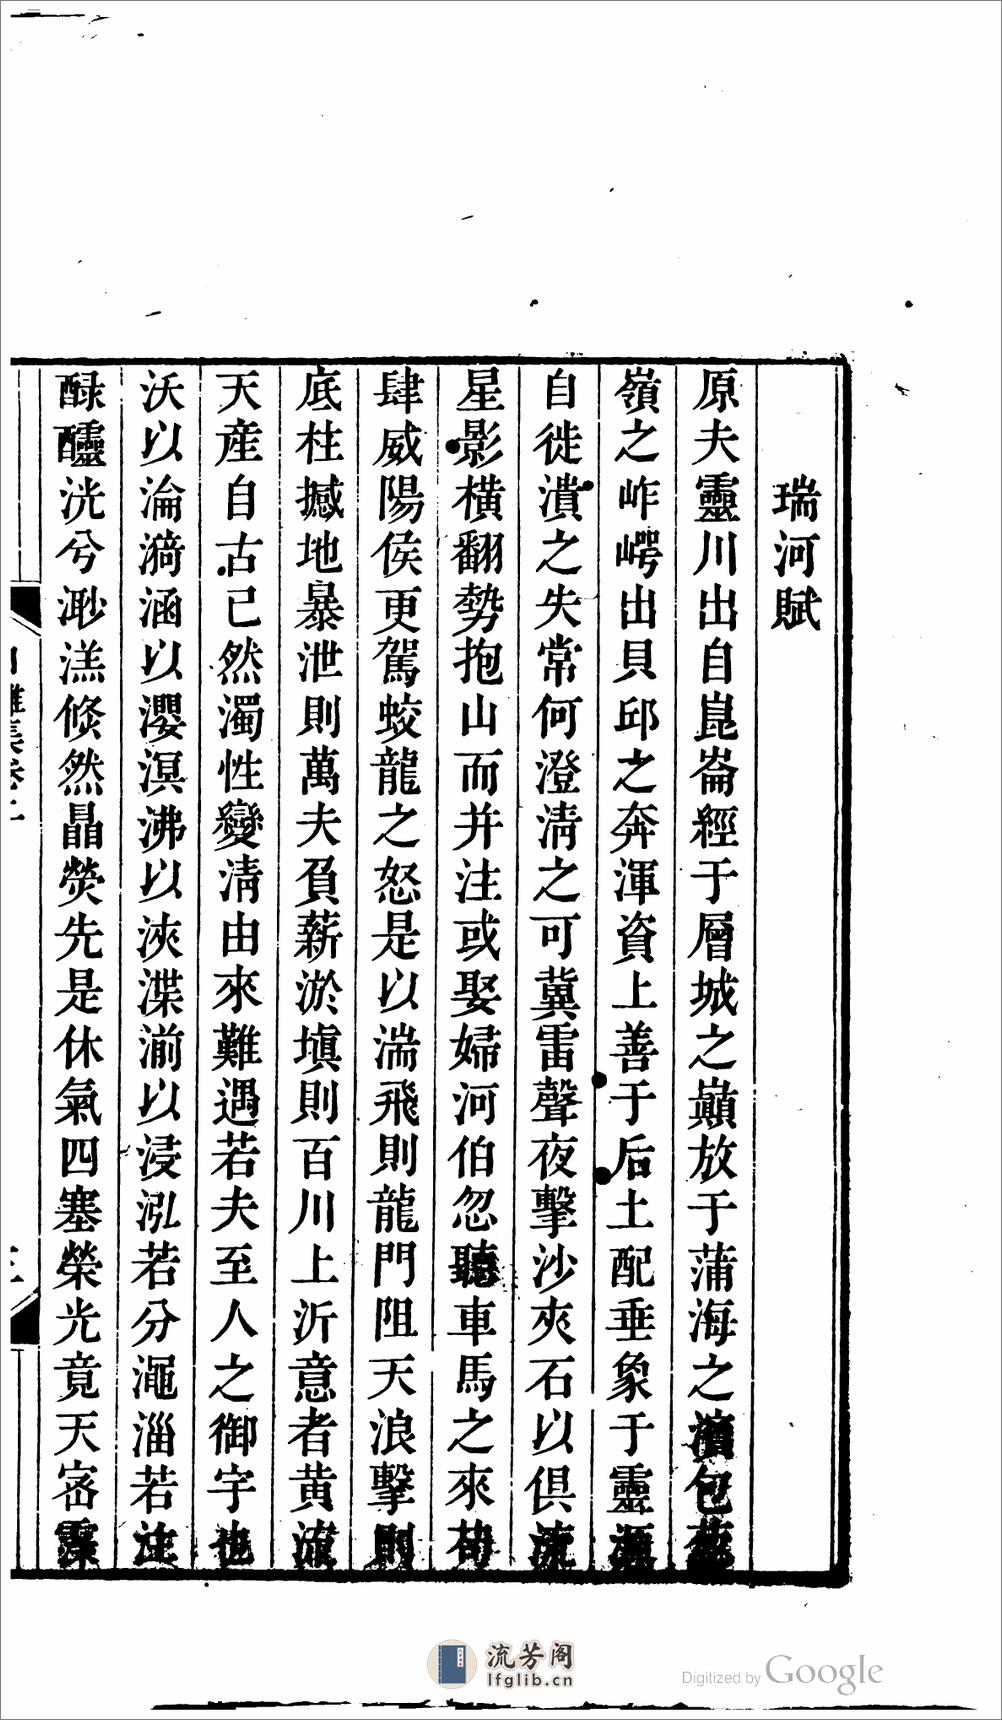 瑞河賦
原夫靈川出自崑崙經于層城之巔放于蒲海之濱包葱
嶺之岞崿出貝邱之奔渾資上善于后土配垂象于靈源
自徙潰之失常何澄清之可冀雷聲夜擊沙夾石以俱流
星影橫翻勢抱山而并注或娶婦河伯忽聽車馬之來
肆威陽侯更駕蛟龍之怒是以湍飛則龍門阻天浪擊則
底柱撼地暴泄則萬夫負薪淤塡則百川上沂意者黄流
天產自古已然濁性變清由來難遇若夫至人之御宇也
沃以淪漪涵以瀴溟沸以浹渫湔以浸泓若分澠淄若注
醁醽洸兮渺溔倐然晶熒先是休氣四塞榮光竟天宻霧
流芳阁
lfglib.cn
Digitized by Google